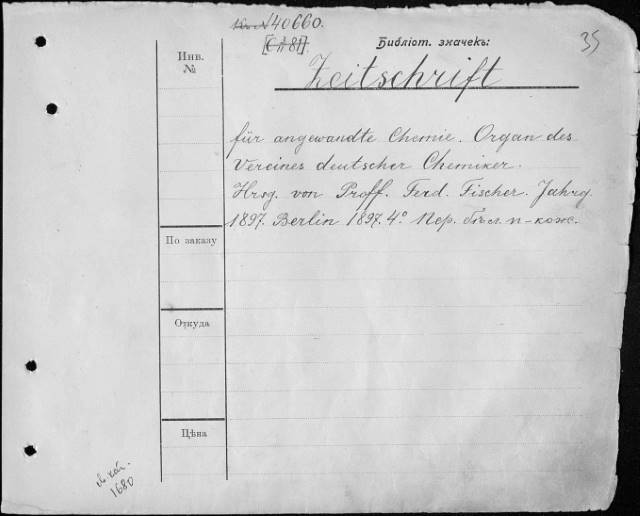 40660.
35
Библіот. значекъ:
Инв.
№
Zeitschrift
für angewandte Chemie. Organ des
Vereines deutscher Chemiker.
Hrsg. von Proff. Ferd. Fischer. Jahrg
1897. Berlin 1897. 4° Пер. бѣл. п-кож.
По заказу
Откуда
Цѣна
кат.
1680